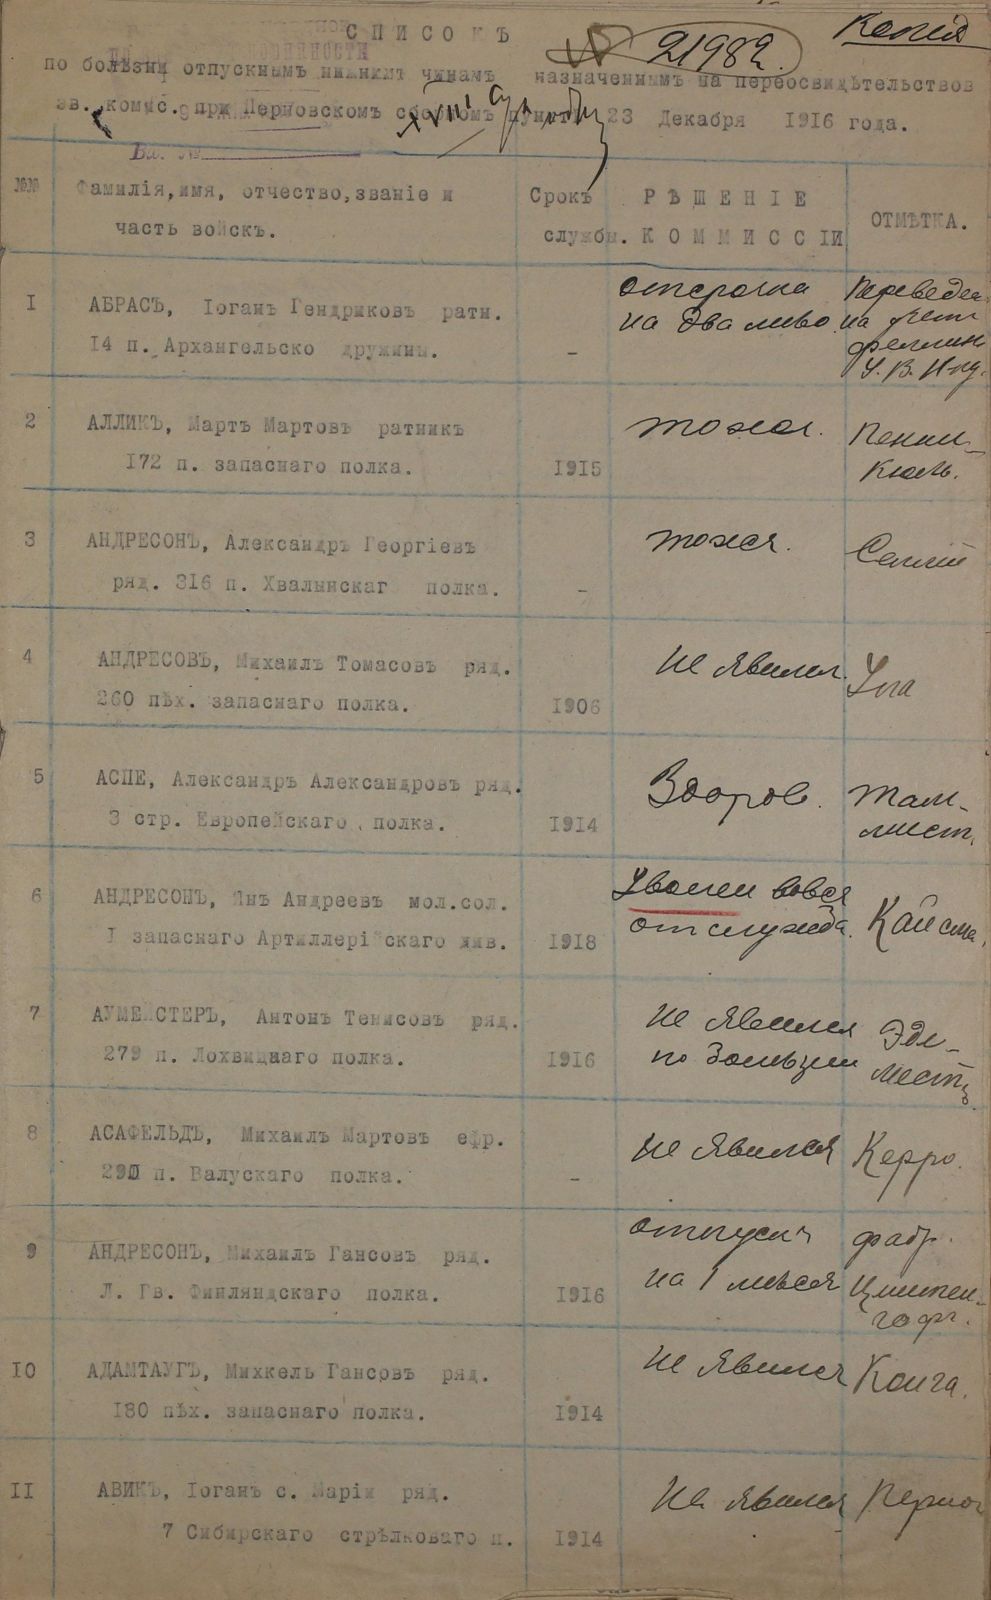 Копія
СПИСОКЪ
№ 21982.
по болѣзни отпускнымъ нижнимъ чинамъ назначеннымъ на переосвидѣтельствов
зв. комис. при Перновскомъ сборномъ пунктѣ 23 Декабря 1916 года.
XVIII
Вх. №
№№ Фамилія, имя, отчество, званіе и часть войскъ.
Срокъ службы.
РѢШЕНІЕ КОММИССІИ
ОТМѢТКА.
I АБРАСЪ, Іоганъ Гендриковъ ратн.
14 п. Архангельско дружины. –
отсрочка
на два
Переведен
на
У. В. Н-ку.
2 АЛЛИКЪ, Мартъ Мартовъ ратникъ
172 п. запаснаго полка. 1915
тоже.
Пенни-
кюль.
3 АНДРЕСОНЪ, Александръ Георгіевъ
ряд. 316 п. Хвалынскаг полка. –
тоже.
4 АНДРЕСОВЪ, Михаилъ Томасовъ ряд.
260 пѣх. запаснаго полка. 1906
не явился.
Ула
5 АСПЕ, Александръ Александровъ ряд.
3 стр. Европейскаго полка. 1914
Здоров.
Там-
мист.
6 АНДРЕСОНЪ, Янъ Андреевъ мол.сол.
I запаснаго Артиллерійскаго див. 1918
Уволен вовся
от служба.
Кайсма.
7 АУМЕЙСТЕРЪ, Антонъ Тенисовъ ряд.
279 п. Лохвицкаго полка. 1916
не явился
по болѣзни
Эде-
местъ
8 АСАФЕЛЬДЪ, Михаилъ Мартовъ ефр.
290 п. Валускаго полка. –
не явился
Керро.
9 АНДРЕСОНЪ, Михаилъ Гансовъ ряд.
Л. Гв. Финляндскаго полка. 1916
отпускъ
на 1 мѣсяц
фабр.
Цинтен-
гофъ.
10 АДАМТАУГЪ, Михкель Гансовъ ряд.
180 пѣх. запаснаго полка. 1914
не явился
Конга.
II АВИКЪ, Іоганъ с. Маріи ряд.
7 Сибирскаго стрѣлковаго п. 1914
не явился
Пернов